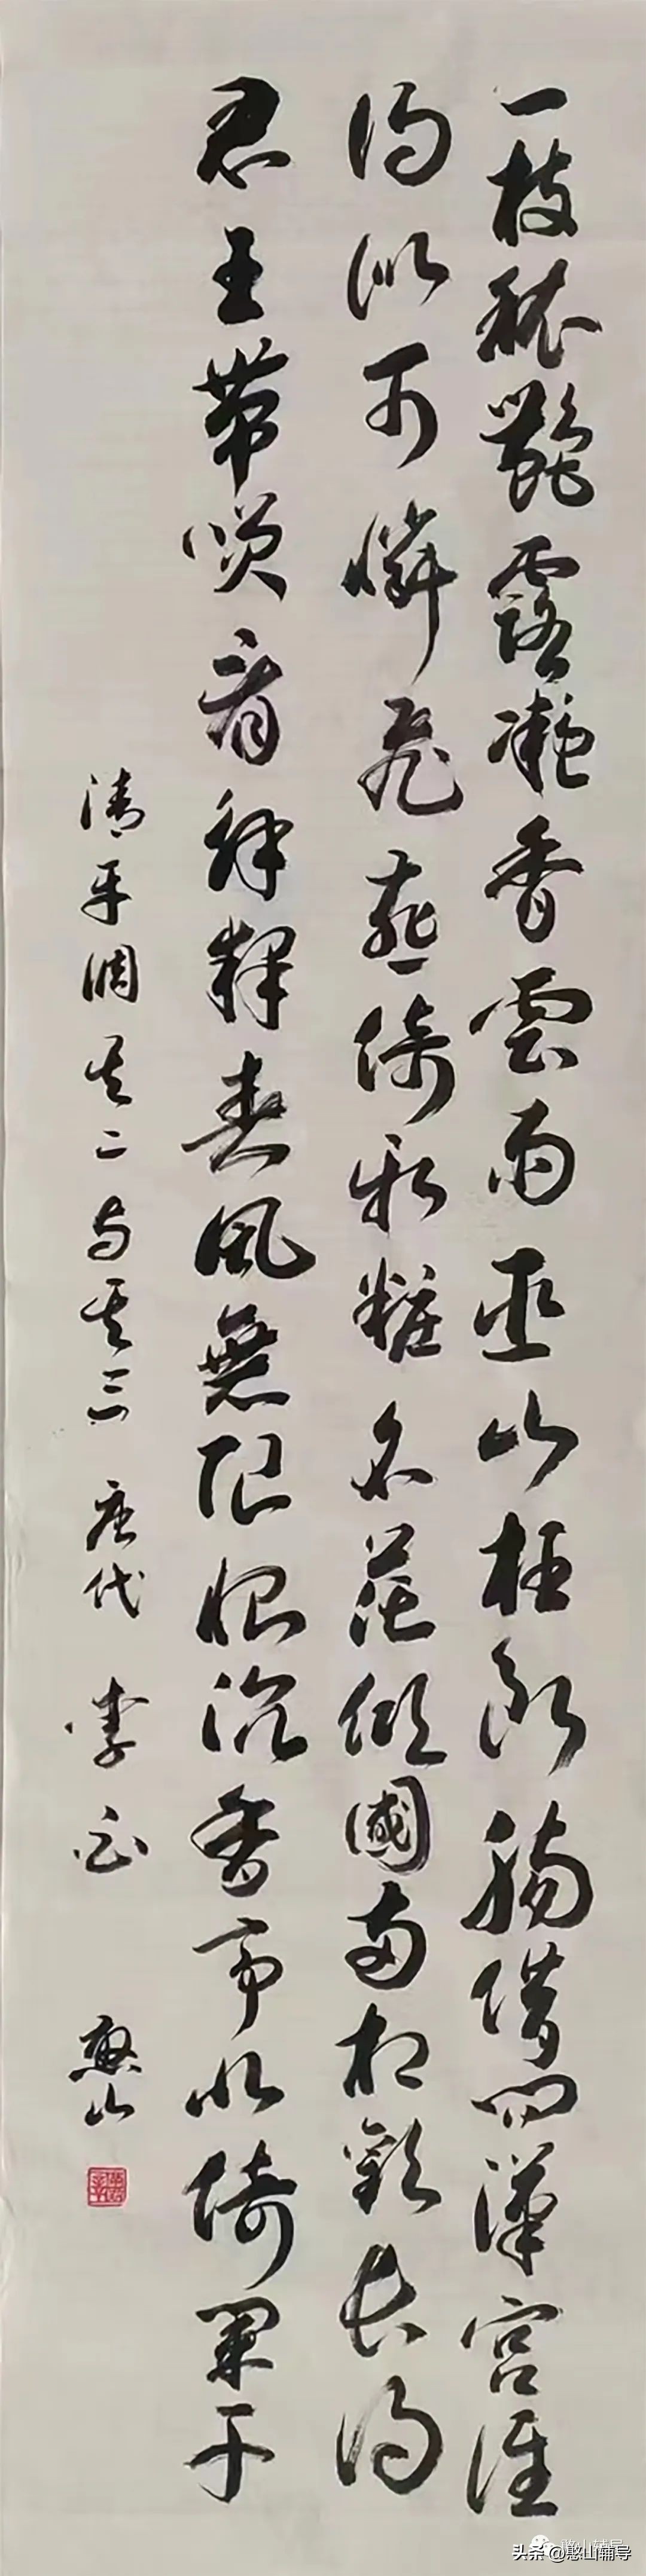 一枝秾艷露凝香雲雨巫山枉断腸借问漢宫谁
得似可憐飛燕倚新粧名花倾國两相歡长得
君王带笑看解釋春風無限恨沉香亭北倚阑干
清平调其二与其三 唐代 李白 憨山
头条 @憨山辅导
憨山辅导